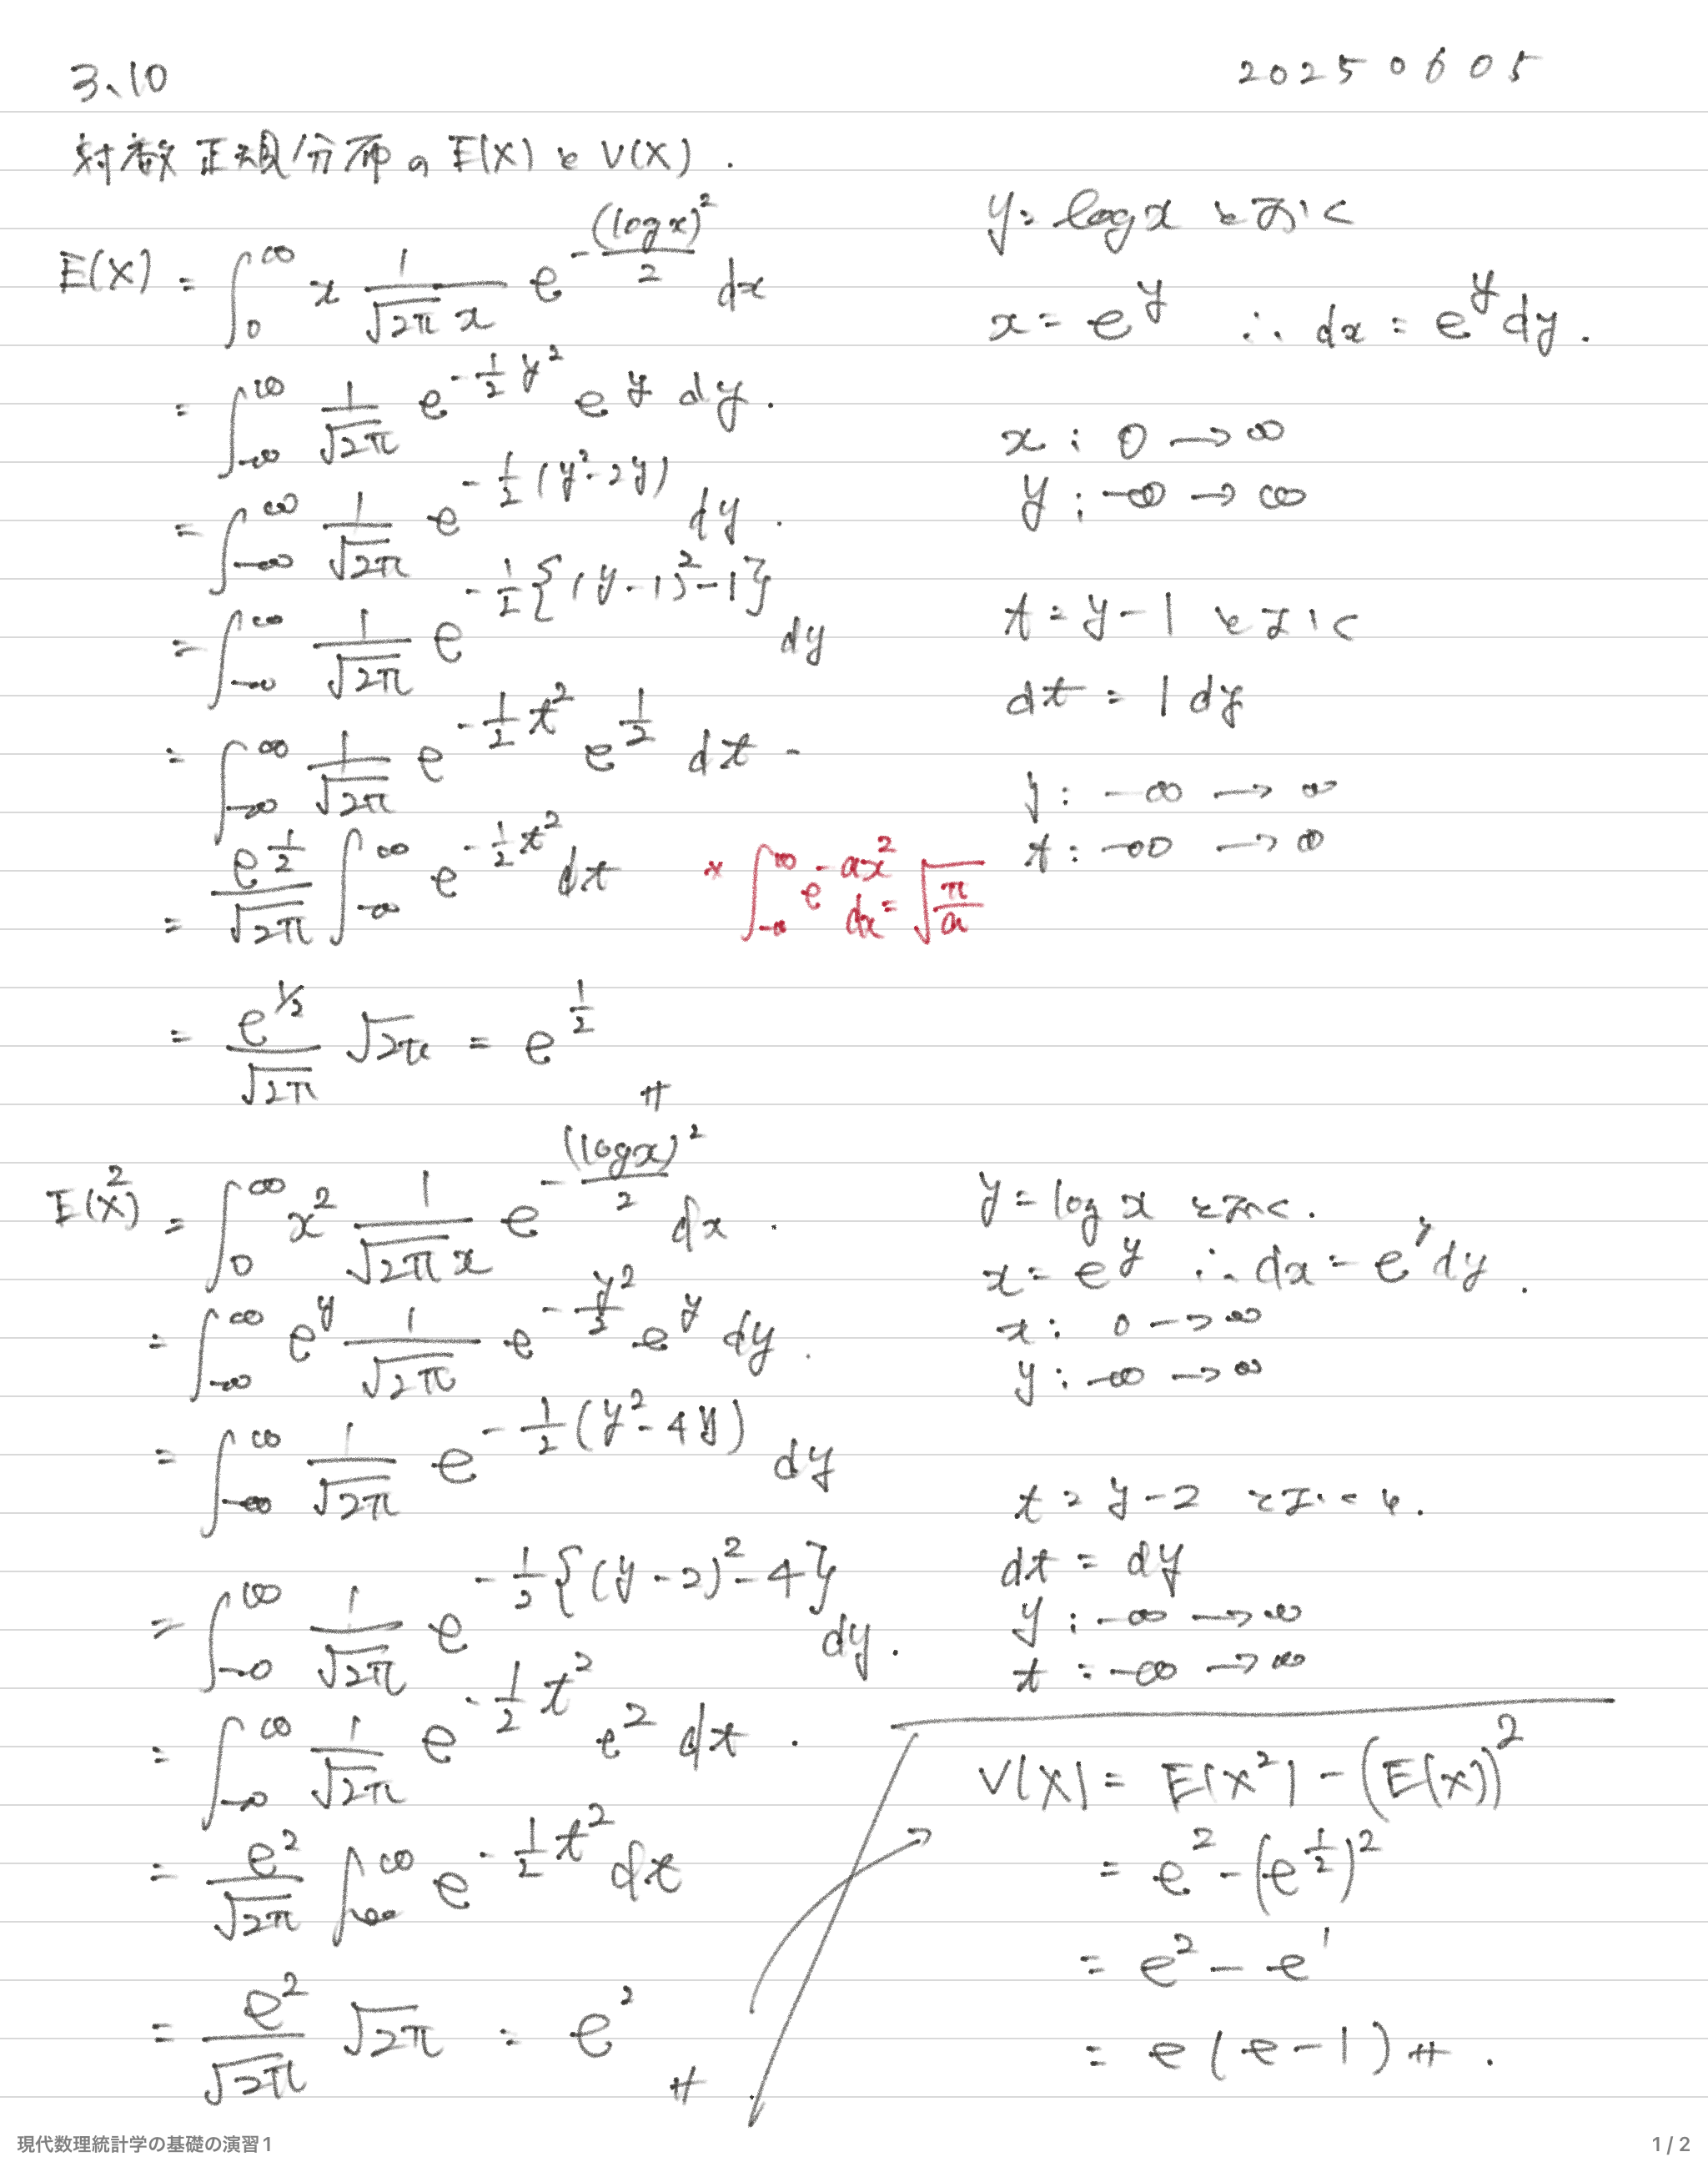 3.10
20250605
対数正規分布の E(X) と V(X).
E(X) = ∫_0^∞ x 1/(√2π x) e^{-(log x)^2/2} dx
= ∫_{-∞}^∞ 1/√2π e^{-1/2 y^2} e^y dy.
= ∫_{-∞}^∞ 1/√2π e^{-1/2 (y^2-2y)} dy.
= ∫_{-∞}^∞ 1/√2π e^{-1/2 {(y-1)^2-1}} dy
= ∫_{-∞}^∞ 1/√2π e^{-1/2 t^2} e^{1/2} dt
= e^{1/2}/√2π ∫_{-∞}^∞ e^{-1/2 t^2} dt
* ∫_{-∞}^∞ e^{-ax^2} dx = √(π/a)
= e^{1/2}/√2π √2π = e^{1/2}
y = log x とおく
x = e^y ∴ dx = e^y dy.
x : 0 → ∞
y : -∞ → ∞
t = y-1 とおく
dt = 1 dy
y : -∞ → ∞
t : -∞ → ∞
E(X^2) = ∫_0^∞ x^2 1/(√2π x) e^{-(log x)^2/2} dx.
= ∫_{-∞}^∞ e^y 1/√2π e^{-y^2/2} e^y dy.
= ∫_{-∞}^∞ 1/√2π e^{-1/2 (y^2-4y)} dy
= ∫_{-∞}^∞ 1/√2π e^{-1/2 {(y-2)^2-4}} dy.
= ∫_{-∞}^∞ 1/√2π e^{-1/2 t^2} e^2 dt.
= e^2/√2π ∫_{-∞}^∞ e^{-1/2 t^2} dt
= e^2/√2π √2π = e^2
y = log x とおく.
x = e^y ∴ dx = e^y dy.
x : 0 → ∞
y : -∞ → ∞
t = y-2 とおくと.
dt = dy
y : -∞ → ∞
t : -∞ → ∞
V(X) = E(X^2) - (E(X))^2
= e^2 - (e^{1/2})^2
= e^2 - e^1
= e(e-1).
現代数理統計学の基礎の演習1
1 / 2